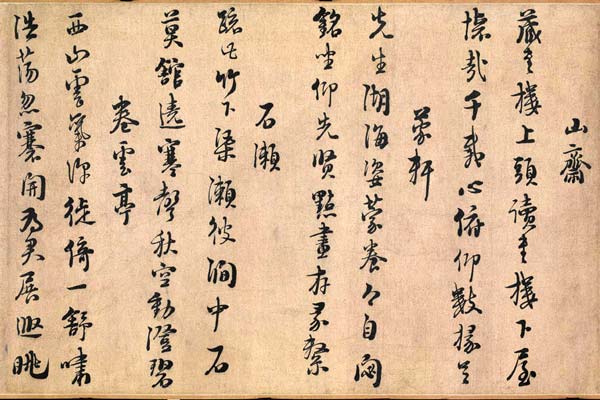 山齋
藏書樓上頭讀書樓下屋
懷哉千載心俯仰數椽足
蒙軒
先生湖海姿蒙養今自閟
銘坐仰先賢點畫存彖繫
石瀨
疏此竹下渠瀨彼澗中石
莫館遶寒聲秋空動澄碧
卷雲亭
西山雲氣深徙倚一舒嘯
浩蕩忽褰開為君展遐眺